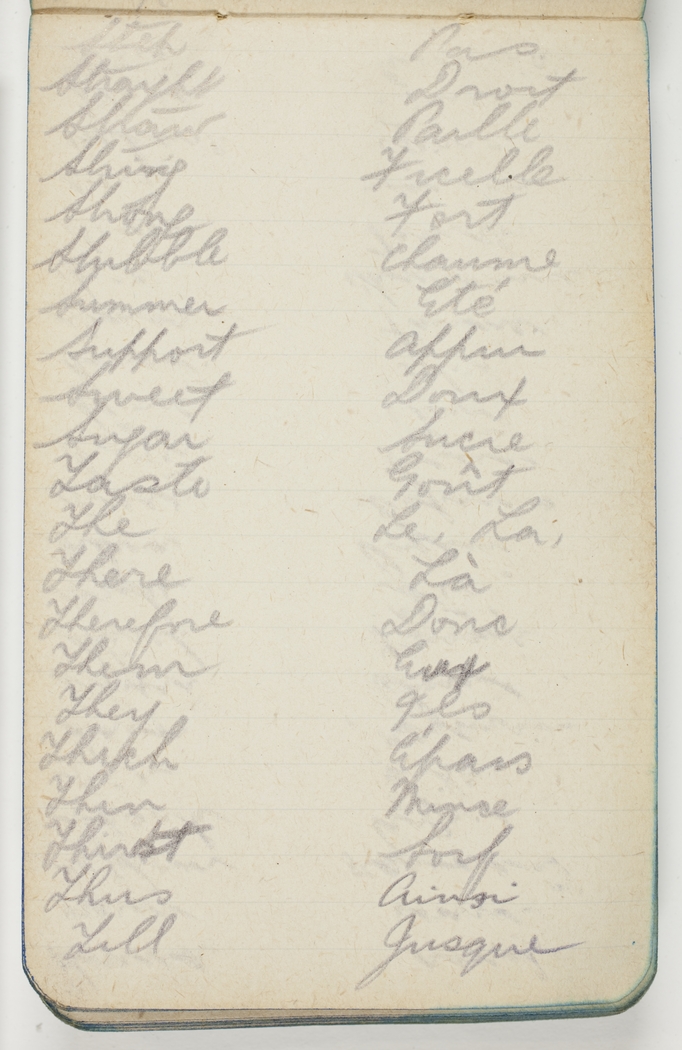 Step Pas
Straight Droit
Straw Paille
String Ficelle
Strong Fort
Stubble Chaume
Summer Eté
Support Appui
Sweet Doux
Sugar Sucre
Taste Goût
The Le, La,
There Là
Therefore Donc
Them Eux
They Ils
Thick Épais
Thin Mince
Thirst Soif
Thus Ainsi
Till Jusque